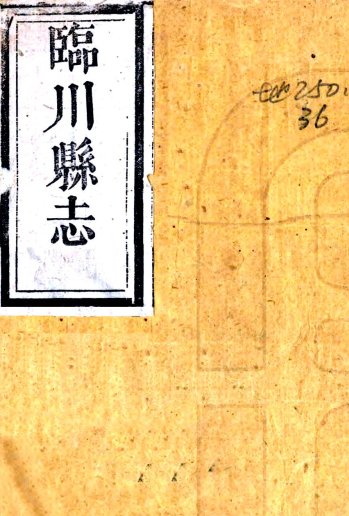 臨川縣志
地250.
36